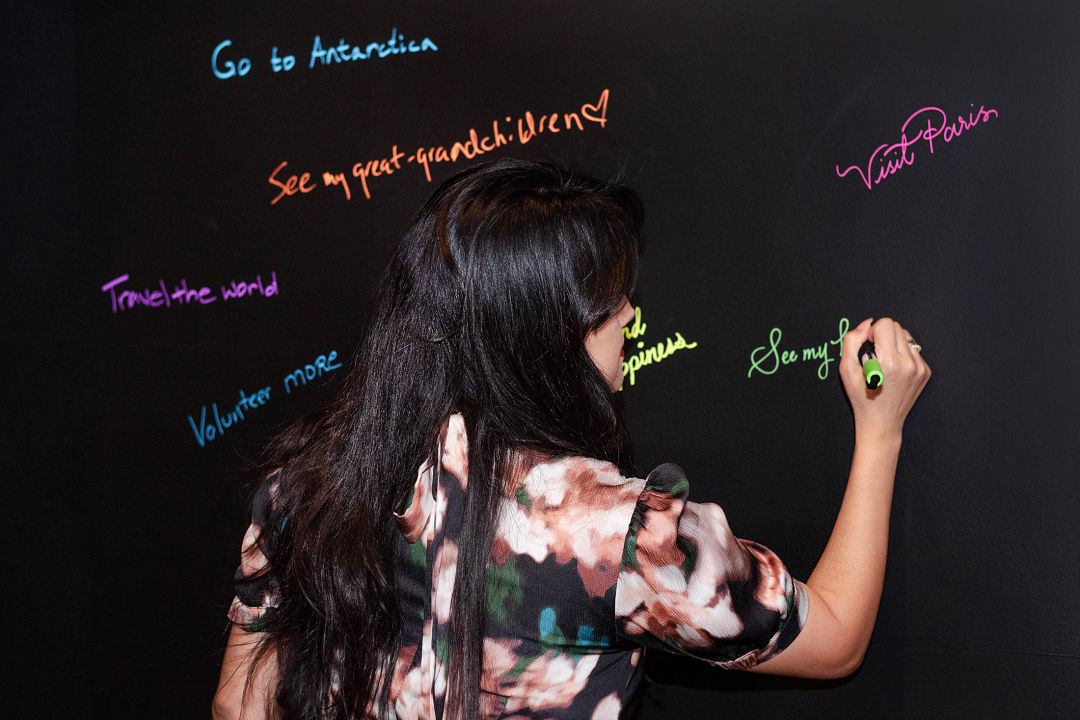 Go to Antarctica
See my great-grandchildren
Visit Paris
Travel the world
Volunteer more
See my